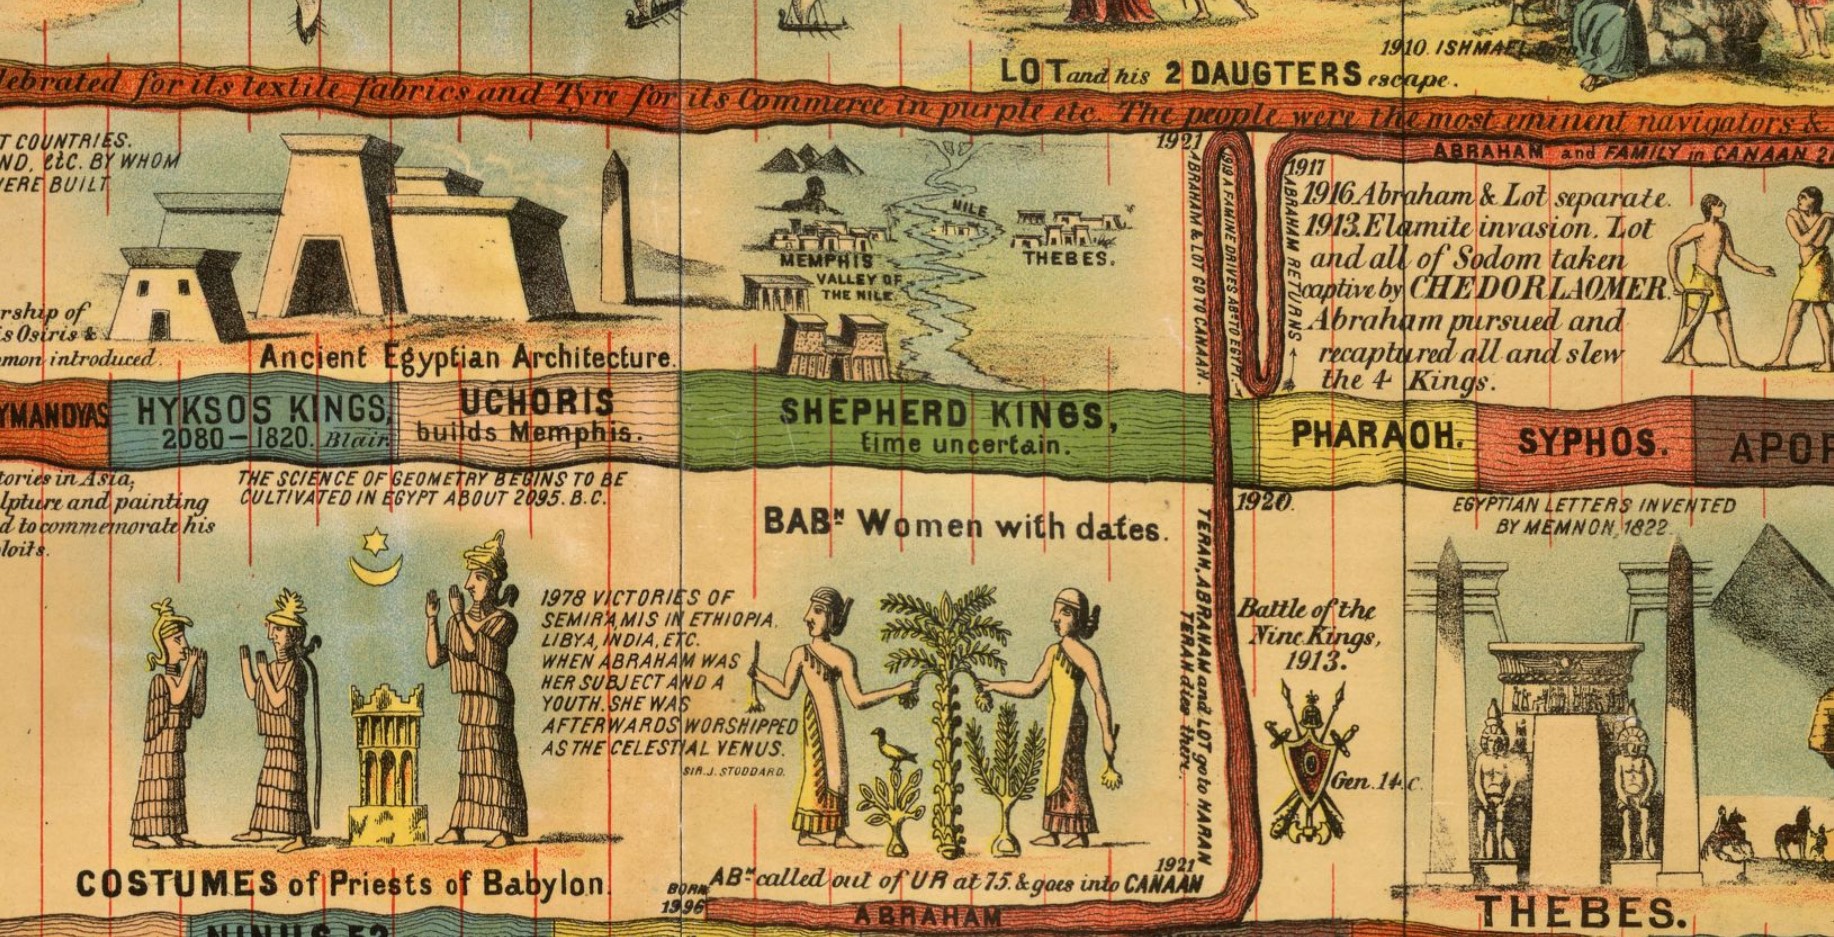 1910. ISHMAEL Born
LOT and his 2 DAUGTERS escape.
lebrated for its textile fabrics and Tyre for its Commerce in purple etc. The people were the most eminent navigators &
T COUNTRIES.
ND, etc. BY WHOM
ERE BUILT
1921
ABRAHAM & LOT GO TO CANAAN.
1919 A FAMINE DRIVES ABM TO EGYPT.
1917
ABRAHAM RETURNS
ABRAHAM and FAMILY in CANAAN
1916. Abraham & Lot separate.
1913. Elamite invasion. Lot
and all of Sodom taken
captive by CHEDORLAOMER.
Abraham pursued and
recaptured all and slew
the 4 Kings.
NILE
MEMPHIS
THEBES.
VALLEY OF
THE NILE.
rship of
is Osiris &
mmon introduced.
Ancient Egyptian Architecture.
YMANDYAS
HYKSOS KINGS,
2080–1820. Blair.
UCHORIS
builds Memphis.
SHEPHERD KINGS,
time uncertain.
PHARAOH.
SYPHOS.
APOP
tories in Asia,
lpture and painting
d to commemorate his
loits.
THE SCIENCE OF GEOMETRY BEGINS TO BE
CULTIVATED IN EGYPT ABOUT 2095. B.C.
BABN Women with dates.
1920.
EGYPTIAN LETTERS INVENTED
BY MEMNON, 1822.
1978 VICTORIES OF
SEMIRAMIS IN ETHIOPIA,
LIBYA, INDIA, ETC.
WHEN ABRAHAM WAS
HER SUBJECT AND A
YOUTH. SHE WAS
AFTERWARDS WORSHIPPED
AS THE CELESTIAL VENUS.
SIR. J. STODDARD.
TERAH, ABRAHAM and LOT go to HARAN
TERAH dies there.
Battle of the
Nine Kings,
1913.
Gen. 14. c.
COSTUMES of Priests of Babylon.
BORN
1996
ABM called out of UR at 75. & goes into CANAAN
1921
ABRAHAM
THEBES.
NINUS 52